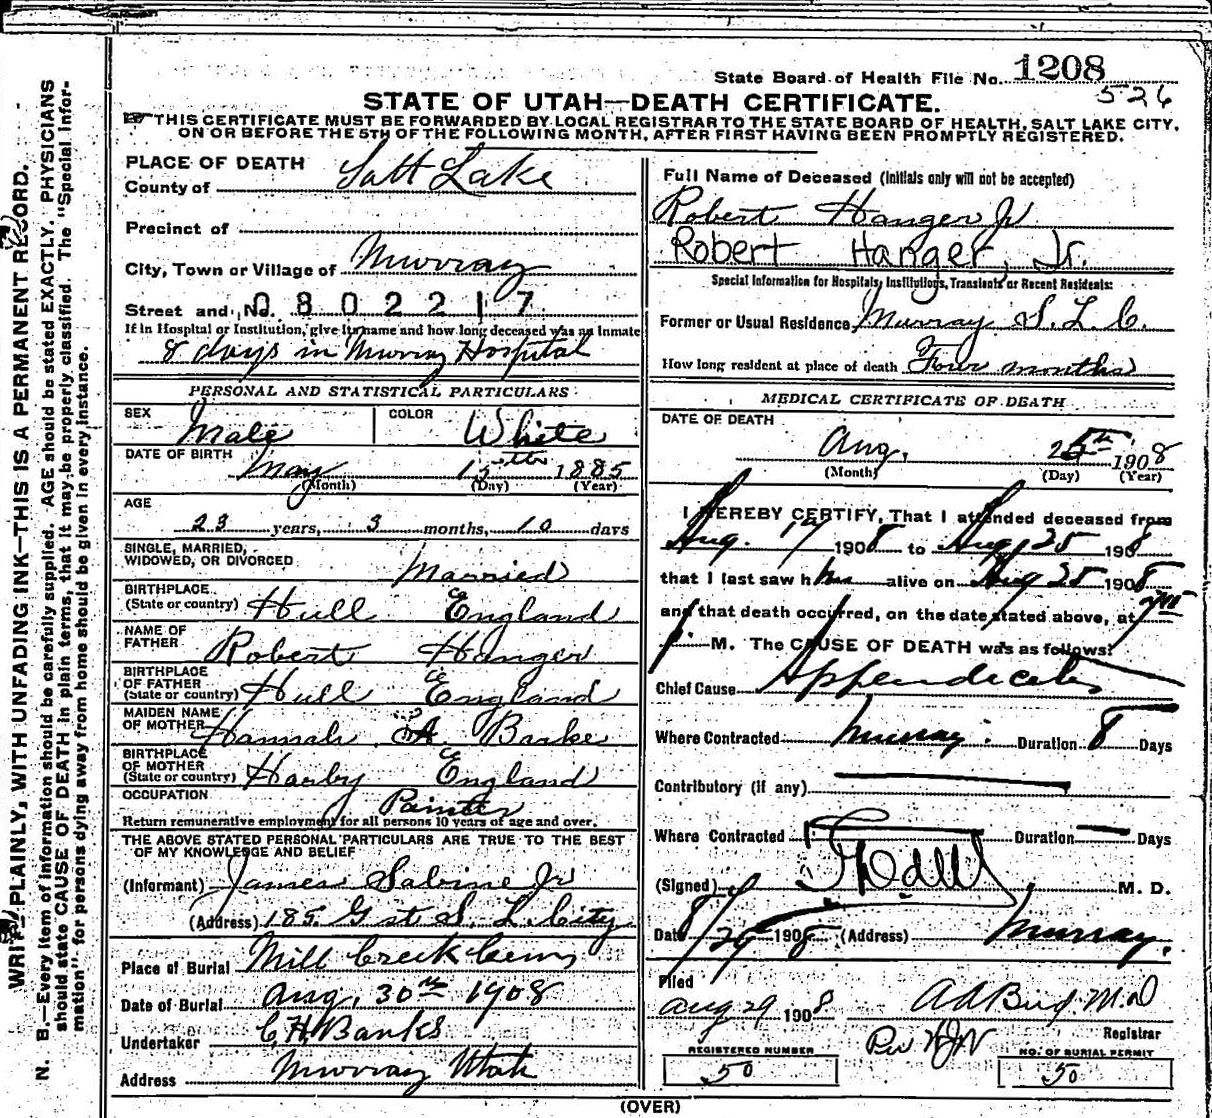 State Board of Health File No. 1208
526
STATE OF UTAH—DEATH CERTIFICATE.
THIS CERTIFICATE MUST BE FORWARDED BY LOCAL REGISTRAR TO THE STATE BOARD OF HEALTH, SALT LAKE CITY,
ON OR BEFORE THE 5TH OF THE FOLLOWING MONTH, AFTER FIRST HAVING BEEN PROMPTLY REGISTERED.
WRITE PLAINLY, WITH UNFADING INK—THIS IS A PERMANENT RECORD.
N. B.—Every item of information should be carefully supplied. AGE should be stated EXACTLY. PHYSICIANS
should state CAUSE OF DEATH in plain terms, that it may be properly classified. The "Special Infor-
mation" for persons dying away from home should be given in every instance.
PLACE OF DEATH
County of Salt Lake
Precinct of
City, Town or Village of Murray
Street and No. 0802217
If in Hospital or Institution, give its name and how long deceased was an Inmate
8 days in Murray Hospital
PERSONAL AND STATISTICAL PARTICULARS
SEX Male COLOR White
DATE OF BIRTH May 15th 1885
(Month) (Day) (Year)
AGE
23 years, 3 months, 10 days
SINGLE, MARRIED,
WIDOWED, OR DIVORCED Married
BIRTHPLACE
(State or country) Hull England
NAME OF
FATHER Robert Hanger
BIRTHPLACE
OF FATHER
(State or country) Hull England
MAIDEN NAME
OF MOTHER Hannah A Barke
BIRTHPLACE
OF MOTHER
(State or country) Harby England
OCCUPATION Painter
Return remunerative employment for all persons 10 years of age and over.
THE ABOVE STATED PERSONAL PARTICULARS ARE TRUE TO THE BEST
OF MY KNOWLEDGE AND BELIEF
(Informant) James Sabine Jr
(Address) 185 G st S. L. City
Place of Burial Mill Creek Cem
Date of Burial Aug. 30th 1908
Undertaker C. H. Banks
Address Murray Utah
Full Name of Deceased (Initials only will not be accepted)
Robert Hanger Jr
Robert Hanger, Jr.
Special Information for Hospitals, Institutions, Transients or Recent Residents:
Former or Usual Residence Murray S. L. C.
How long resident at place of death Four months
MEDICAL CERTIFICATE OF DEATH
DATE OF DEATH
Aug. 25th 1908
(Month) (Day) (Year)
I HEREBY CERTIFY, That I attended deceased from
Aug. 17 1908 to Aug 25 1908
that I last saw him alive on Aug 25 1908
and that death occurred, on the date stated above, at
P. M. The CAUSE OF DEATH was as follows:
Chief Cause Appendicitis
Where Contracted Murray. Duration 8 Days
Contributory (if any)
Where Contracted Duration Days
(Signed) M. D.
Date 8/29 1908 (Address) Murray.
Filed
Aug 29 1908 A A Bird M.D
Registrar
Per
REGISTERED NUMBER
50
NO. OF BURIAL PERMIT
50
(OVER)